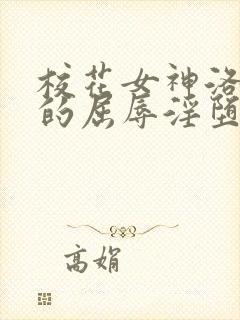 校花女神洛
的屈辱淫堕
高娟